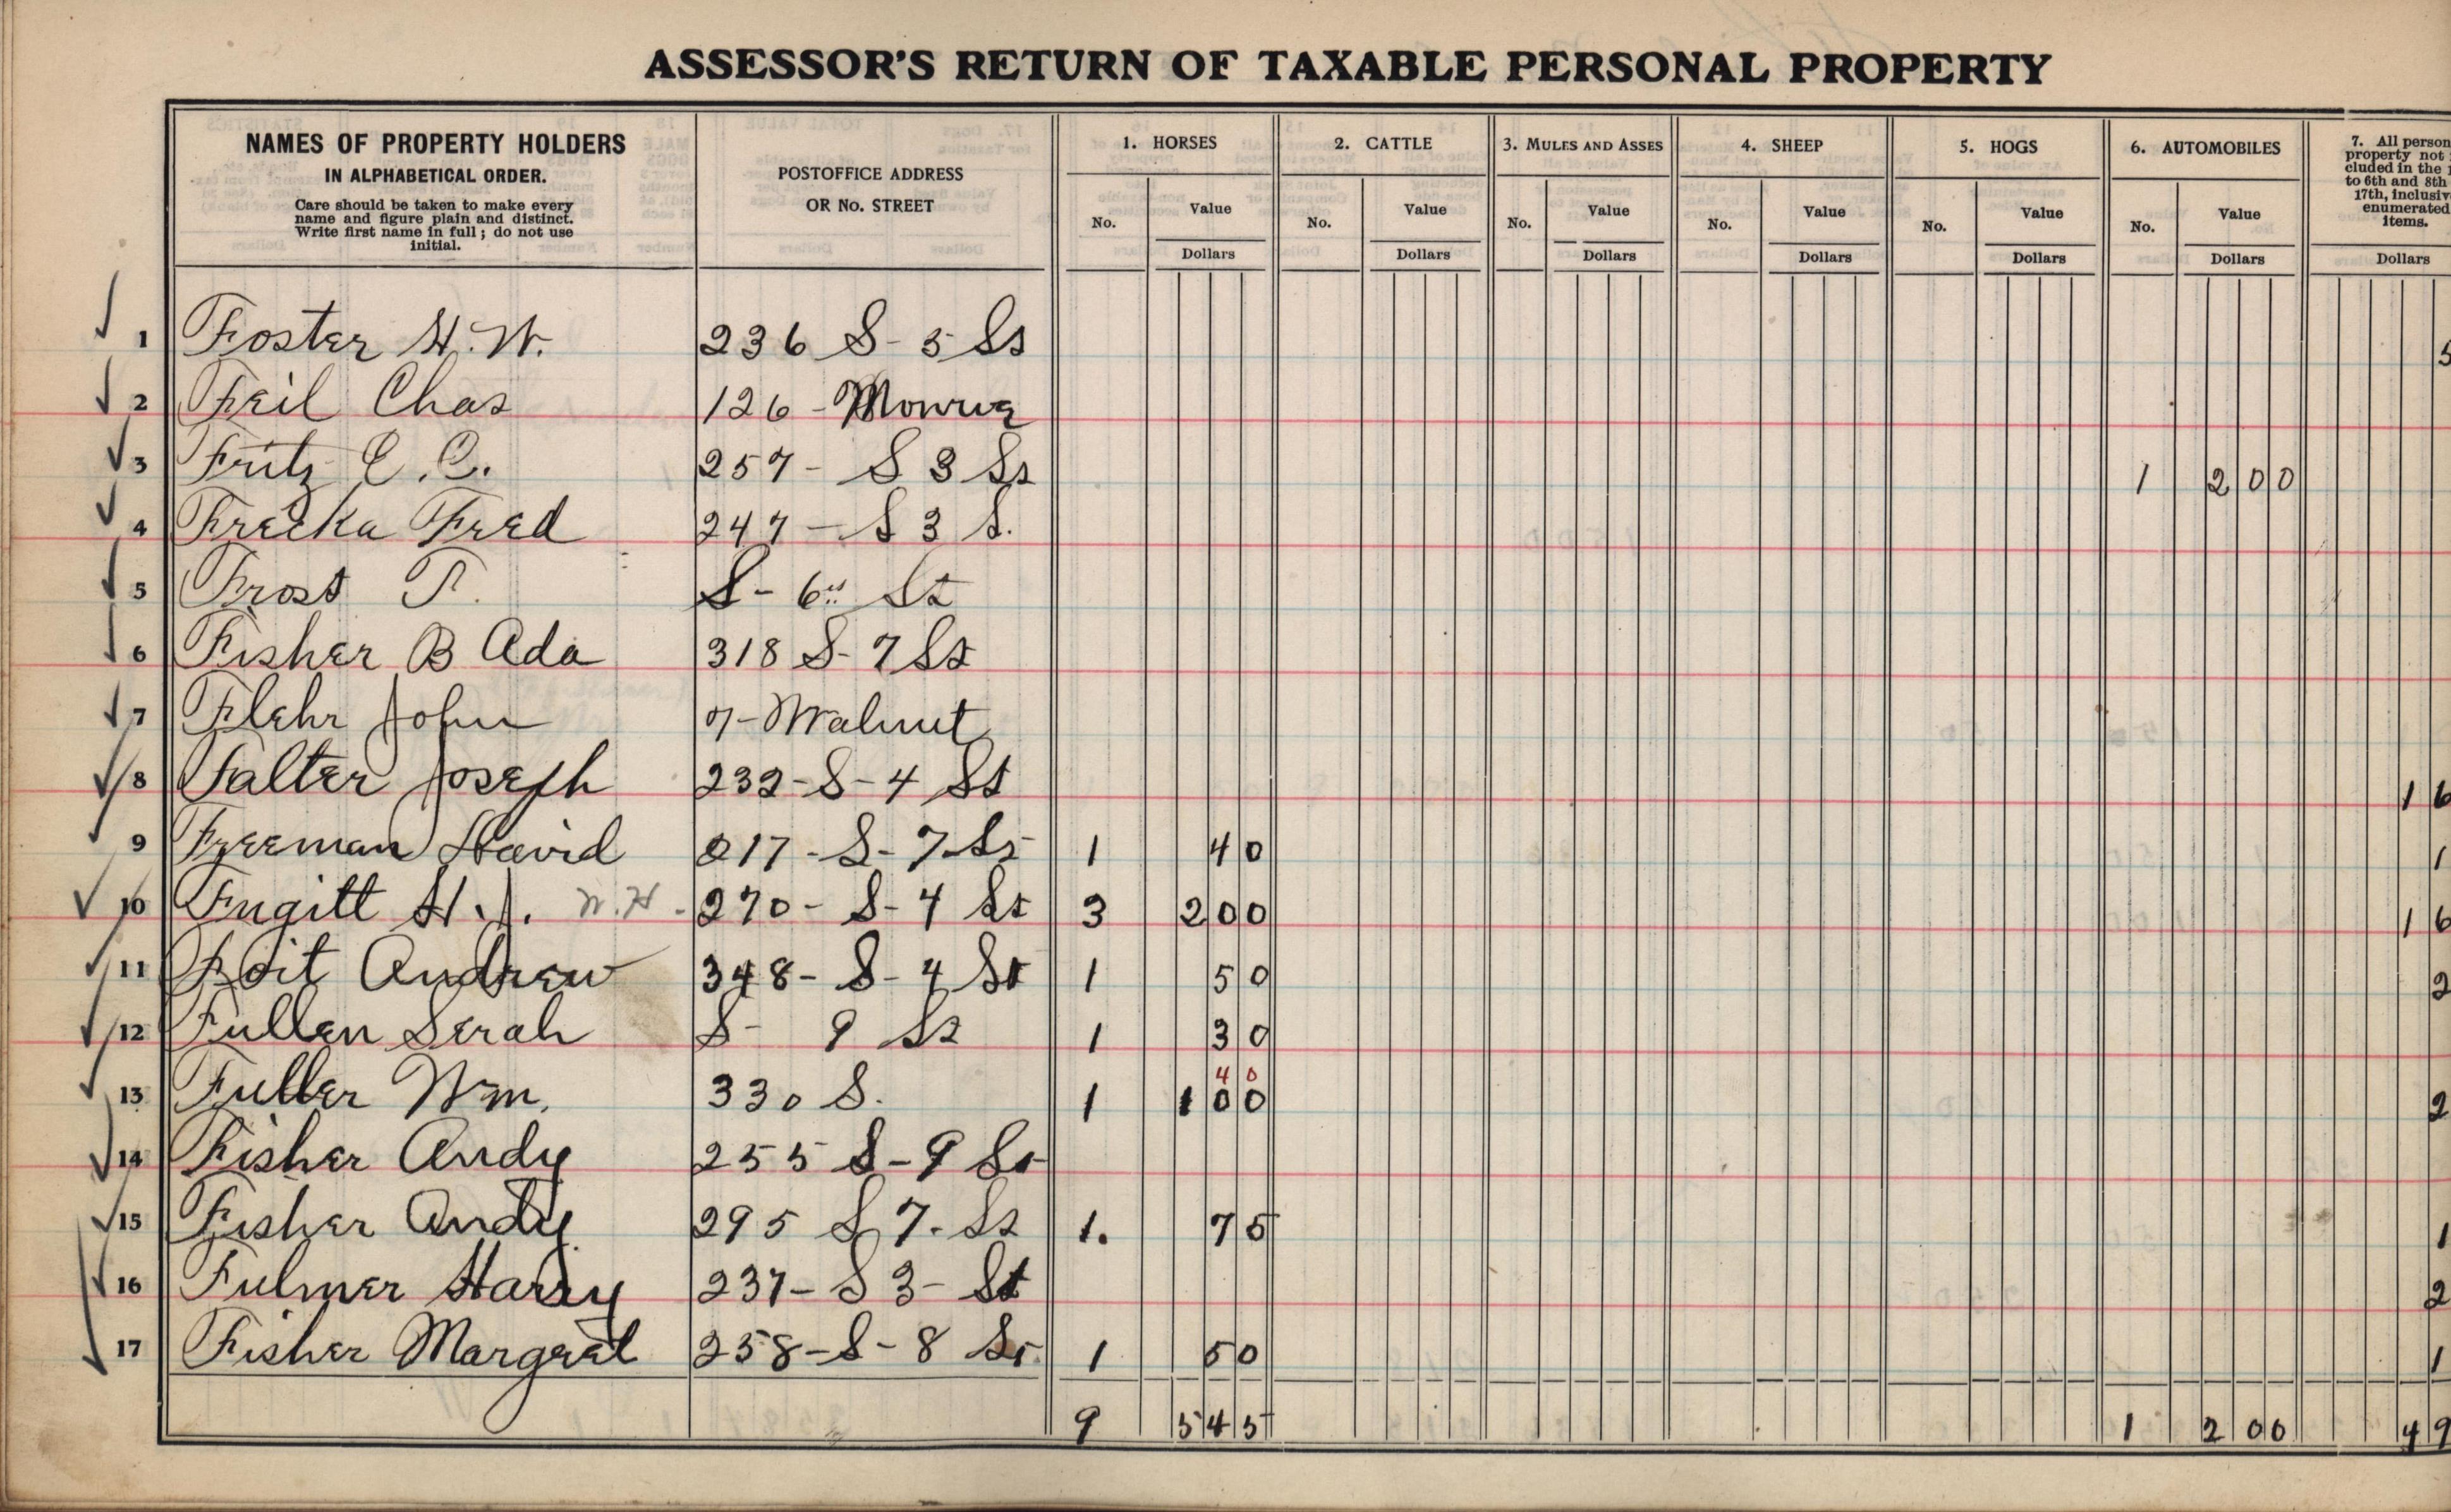 ASSESSOR'S RETURN OF TAXABLE PERSONAL PROPERTY
NAMES OF PROPERTY HOLDERS
IN ALPHABETICAL ORDER.
Care should be taken to make every
name and figure plain and distinct.
Write first name in full; do not use
initial.
POSTOFFICE ADDRESS
OR No. STREET
1. HORSES
No.
Value
Dollars
2. CATTLE
No.
Value
Dollars
3. MULES AND ASSES
No.
Value
Dollars
4. SHEEP
No.
Value
Dollars
5. HOGS
No.
Value
Dollars
6. AUTOMOBILES
No.
Value
Dollars
7. All person
property not
cluded in the
to 6th and 8th
17th, inclusiv
enumerated
items.
Dollars
1 Foster H. W. 236 S-5 St 5
2 Feil Chas 126-Monroe
3 Fritz C. C. 257- S 3 St 1 200
4 Frecka Fred 247-S 3 S.
5 Frost T. S- 6th St
6 Fisher B Ada 318 S-7 St
7 Flehr John 7-Walnut
8 Falter Joseph 232-S-4 St 1 6
9 Freeman David 217-S-7-St 1 40 1
10 Fugitt H. J. W. H. 270-S-4 St 3 200 1 6
11 Foit Andrew 348-S-4 St 1 50 2
12 Fullen Serah S- 9 St 1 30
40
13 Fuller Wm. 330 S. 1 100 2
14 Fisher Andy 255 S-9 St
15 Fisher Andy 295 S 7-St 1. 75 1
16 Fulmer Harry 237-S 3-St 2
17 Fisher Margret 258-S-8 St. 1 50 1
9 545 1 200 49